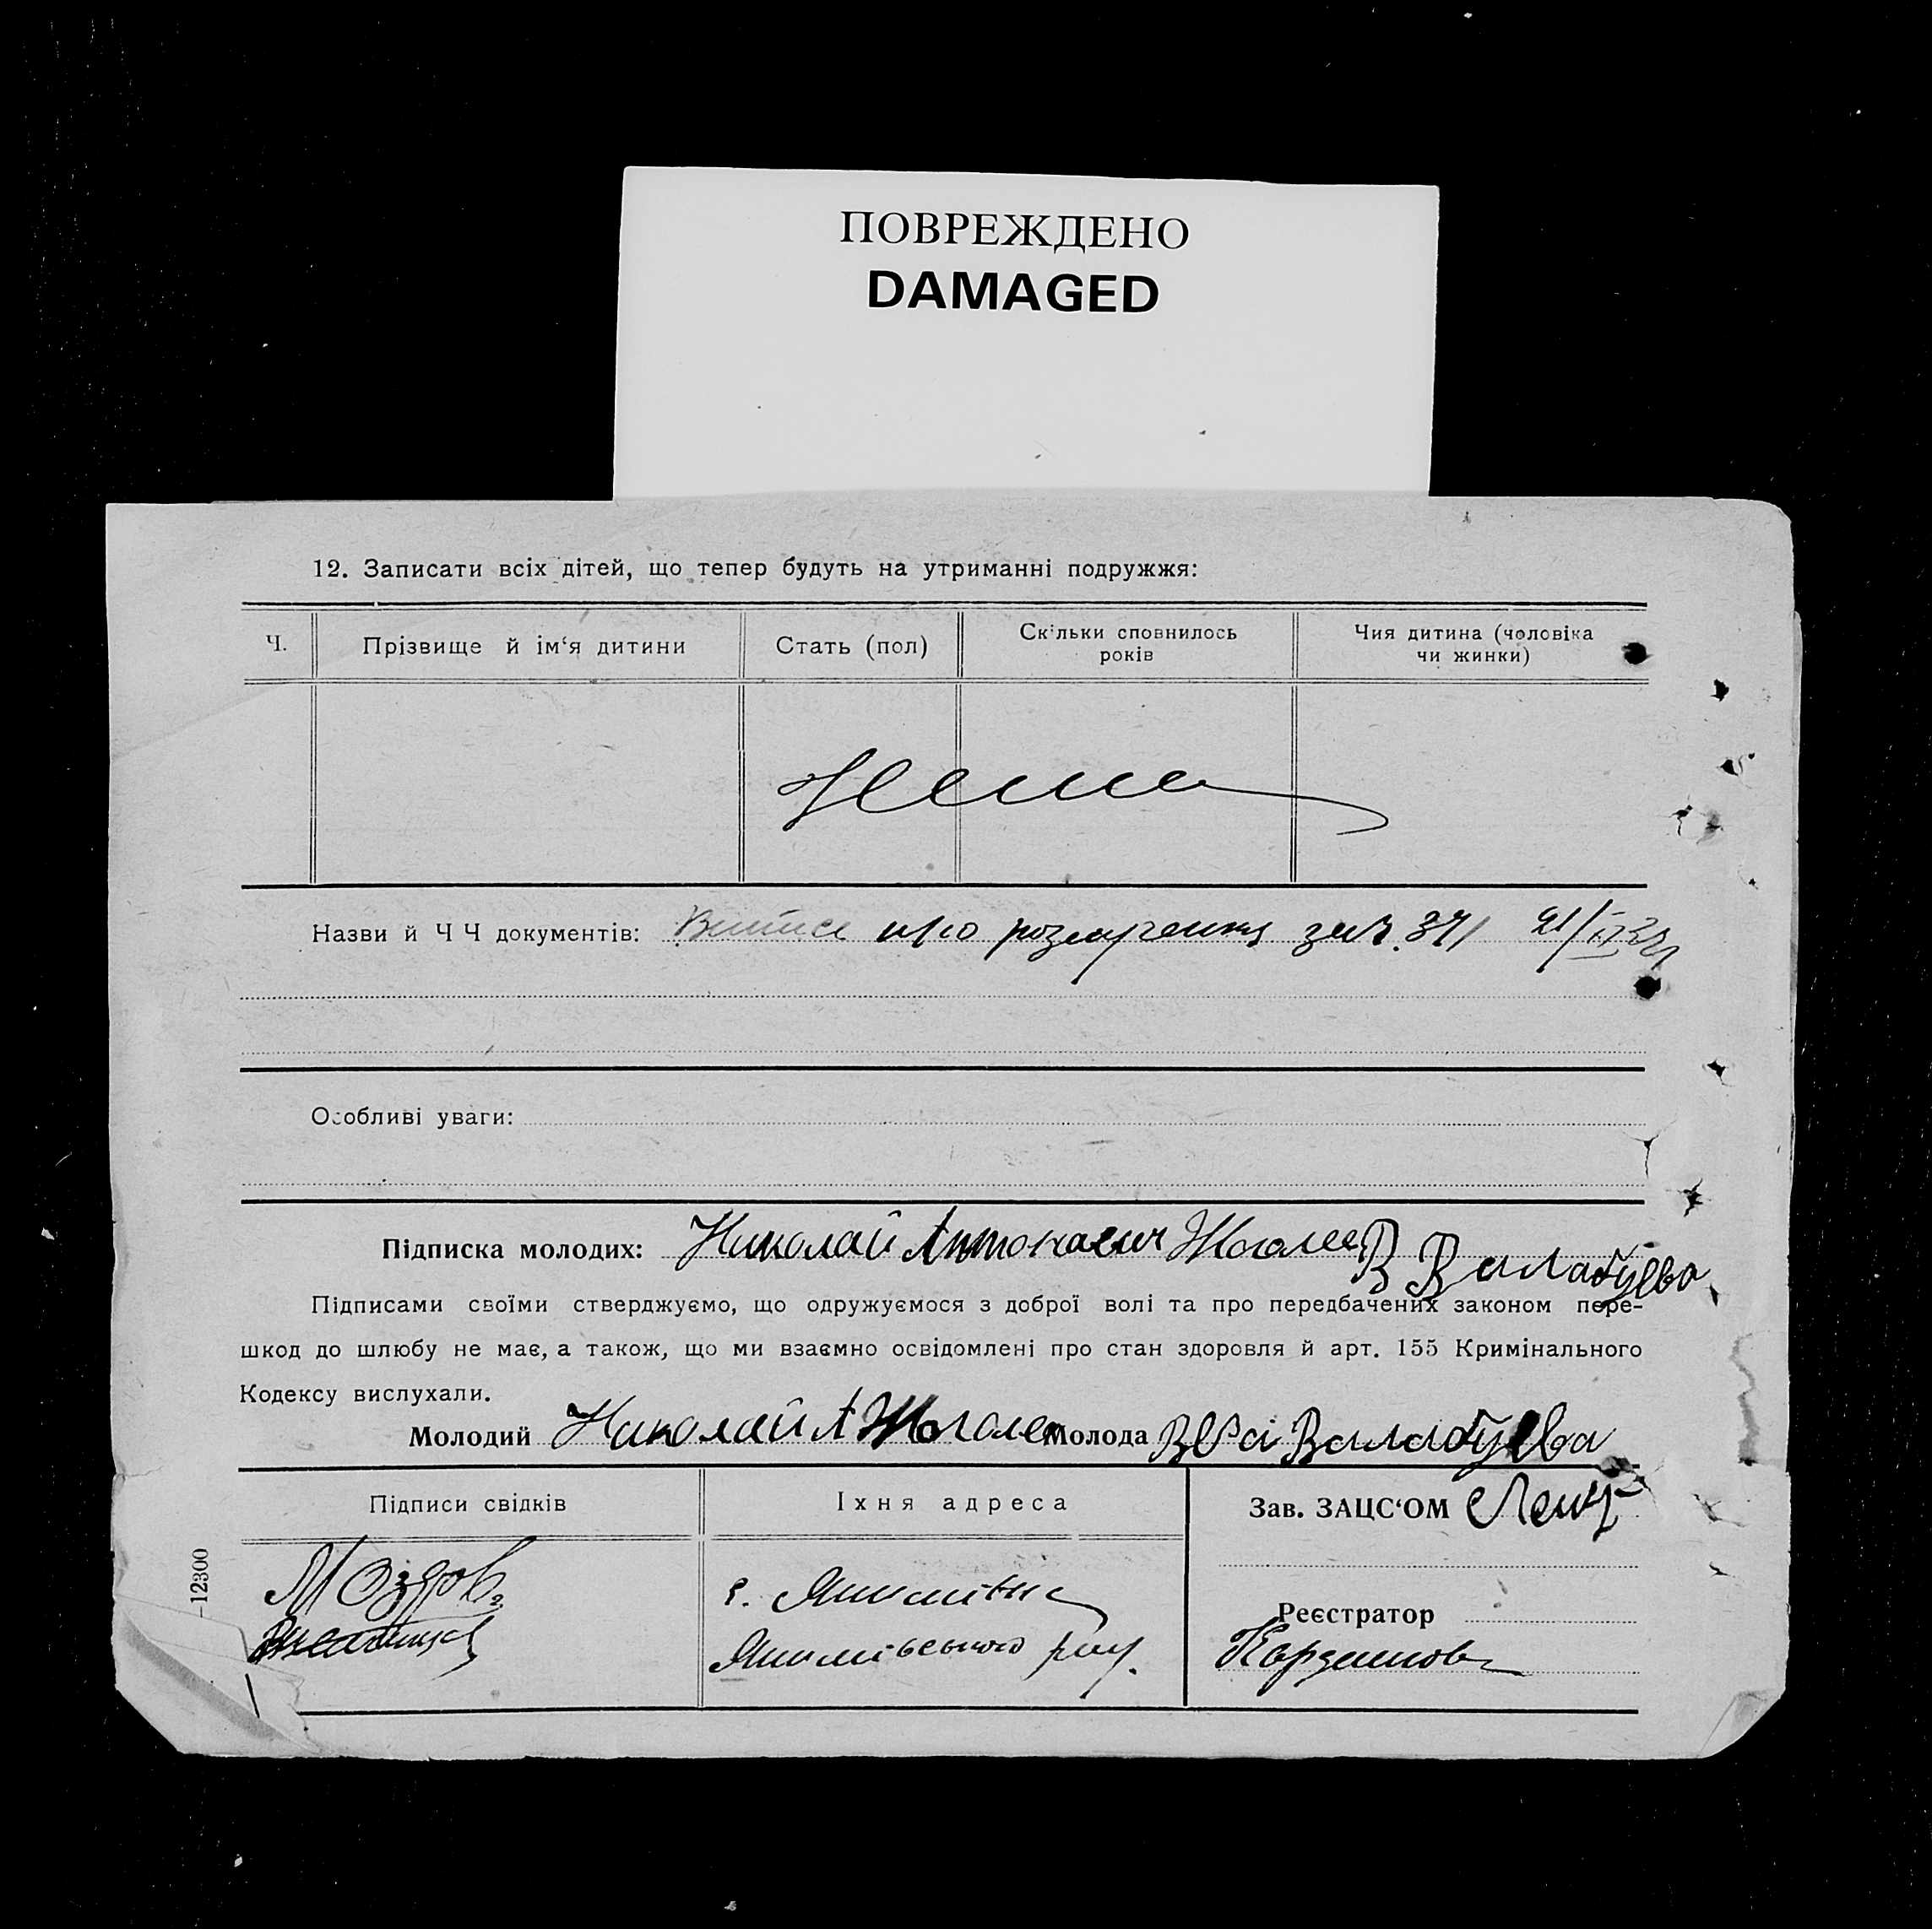 ПОВРЕЖДЕНО
DAMAGED
12. Записати всіх дітей, що тепер будуть на утриманні подружжя:
Ч. Прізвище й ім‘я дитини Стать (пол) Скільки сповнилось років Чия дитина (чоловіка чи жинки)
Нема
Назви й Ч Ч документів: Витяг про розлучення за
Особливі уваги:
Підписка молодих: Николай Антонаевич В Валабуева
Підписами своїми стверджуємо, що одружуємося з доброї волі та про передбачених законом пере-
шкод до шлюбу не має, а також, що ми взаємно освідомлені про стан здоровля й арт. 155 Кримінального
Кодексу вислухали.
Молодий Николай А Молода Вера Валабуева
Підписи свідків Їхня адреса Зав. ЗАЦС‘ОМ
с. Якимівка
Реєстратор
Якимівського рай.
—12300